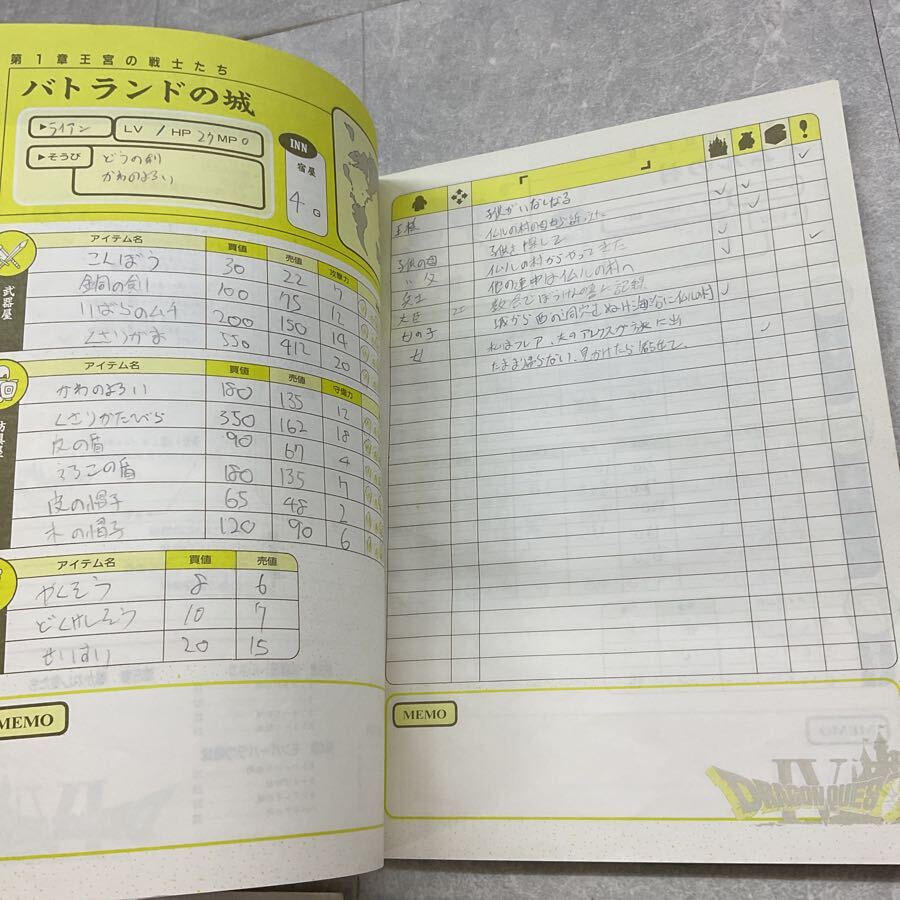 第1章王宮の戦士たち
バトランドの城
▶ライアン LV 1 HP 27 MP 0
▶そうび どうの剣
かわのよろい
INN
宿屋
4 G
アイテム名 買値 売値 攻撃力
武器屋
こんぼう 30 22 7
銅の剣 100 75 12
いばらのムチ 200 150 14
くさりがま 550 412 20
アイテム名 買値 売値 守備力
防具屋
かわのよろい 180 135 12
くさりかたびら 350 162 18
皮の盾 90 67 4
うろこの盾 180 135 7
皮の帽子 65 48 2
木の帽子 120 90 6
アイテム名 買値 売値
やくそう 8 6
どくけしそう 10 7
せいすい 20 15
MEMO
「 」 !
王様 子供がいなくなる
仏ルの村の
子供の母 子供を探して
〃 父 仏ルの村からやってきた
兵士 他の連中は仏ルの村へ
大臣 教会でぼうけんの書に記録
女の子 城から西の洞穴をぬけ
女 私はフレア、夫のアレクスが旅に出
たまま帰らない、見かけたら
MEMO
DRAGON QUEST
IV